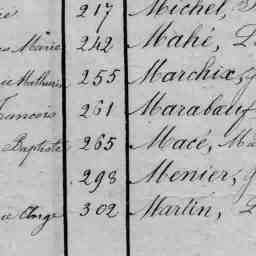 217 Michel,
Marie 242 Mahé,
Mathurin 255 Marchix,
François 261 Marabœuf
Baptiste 265 Macé, Ma
298 Menier,
Ange 302 Martin,